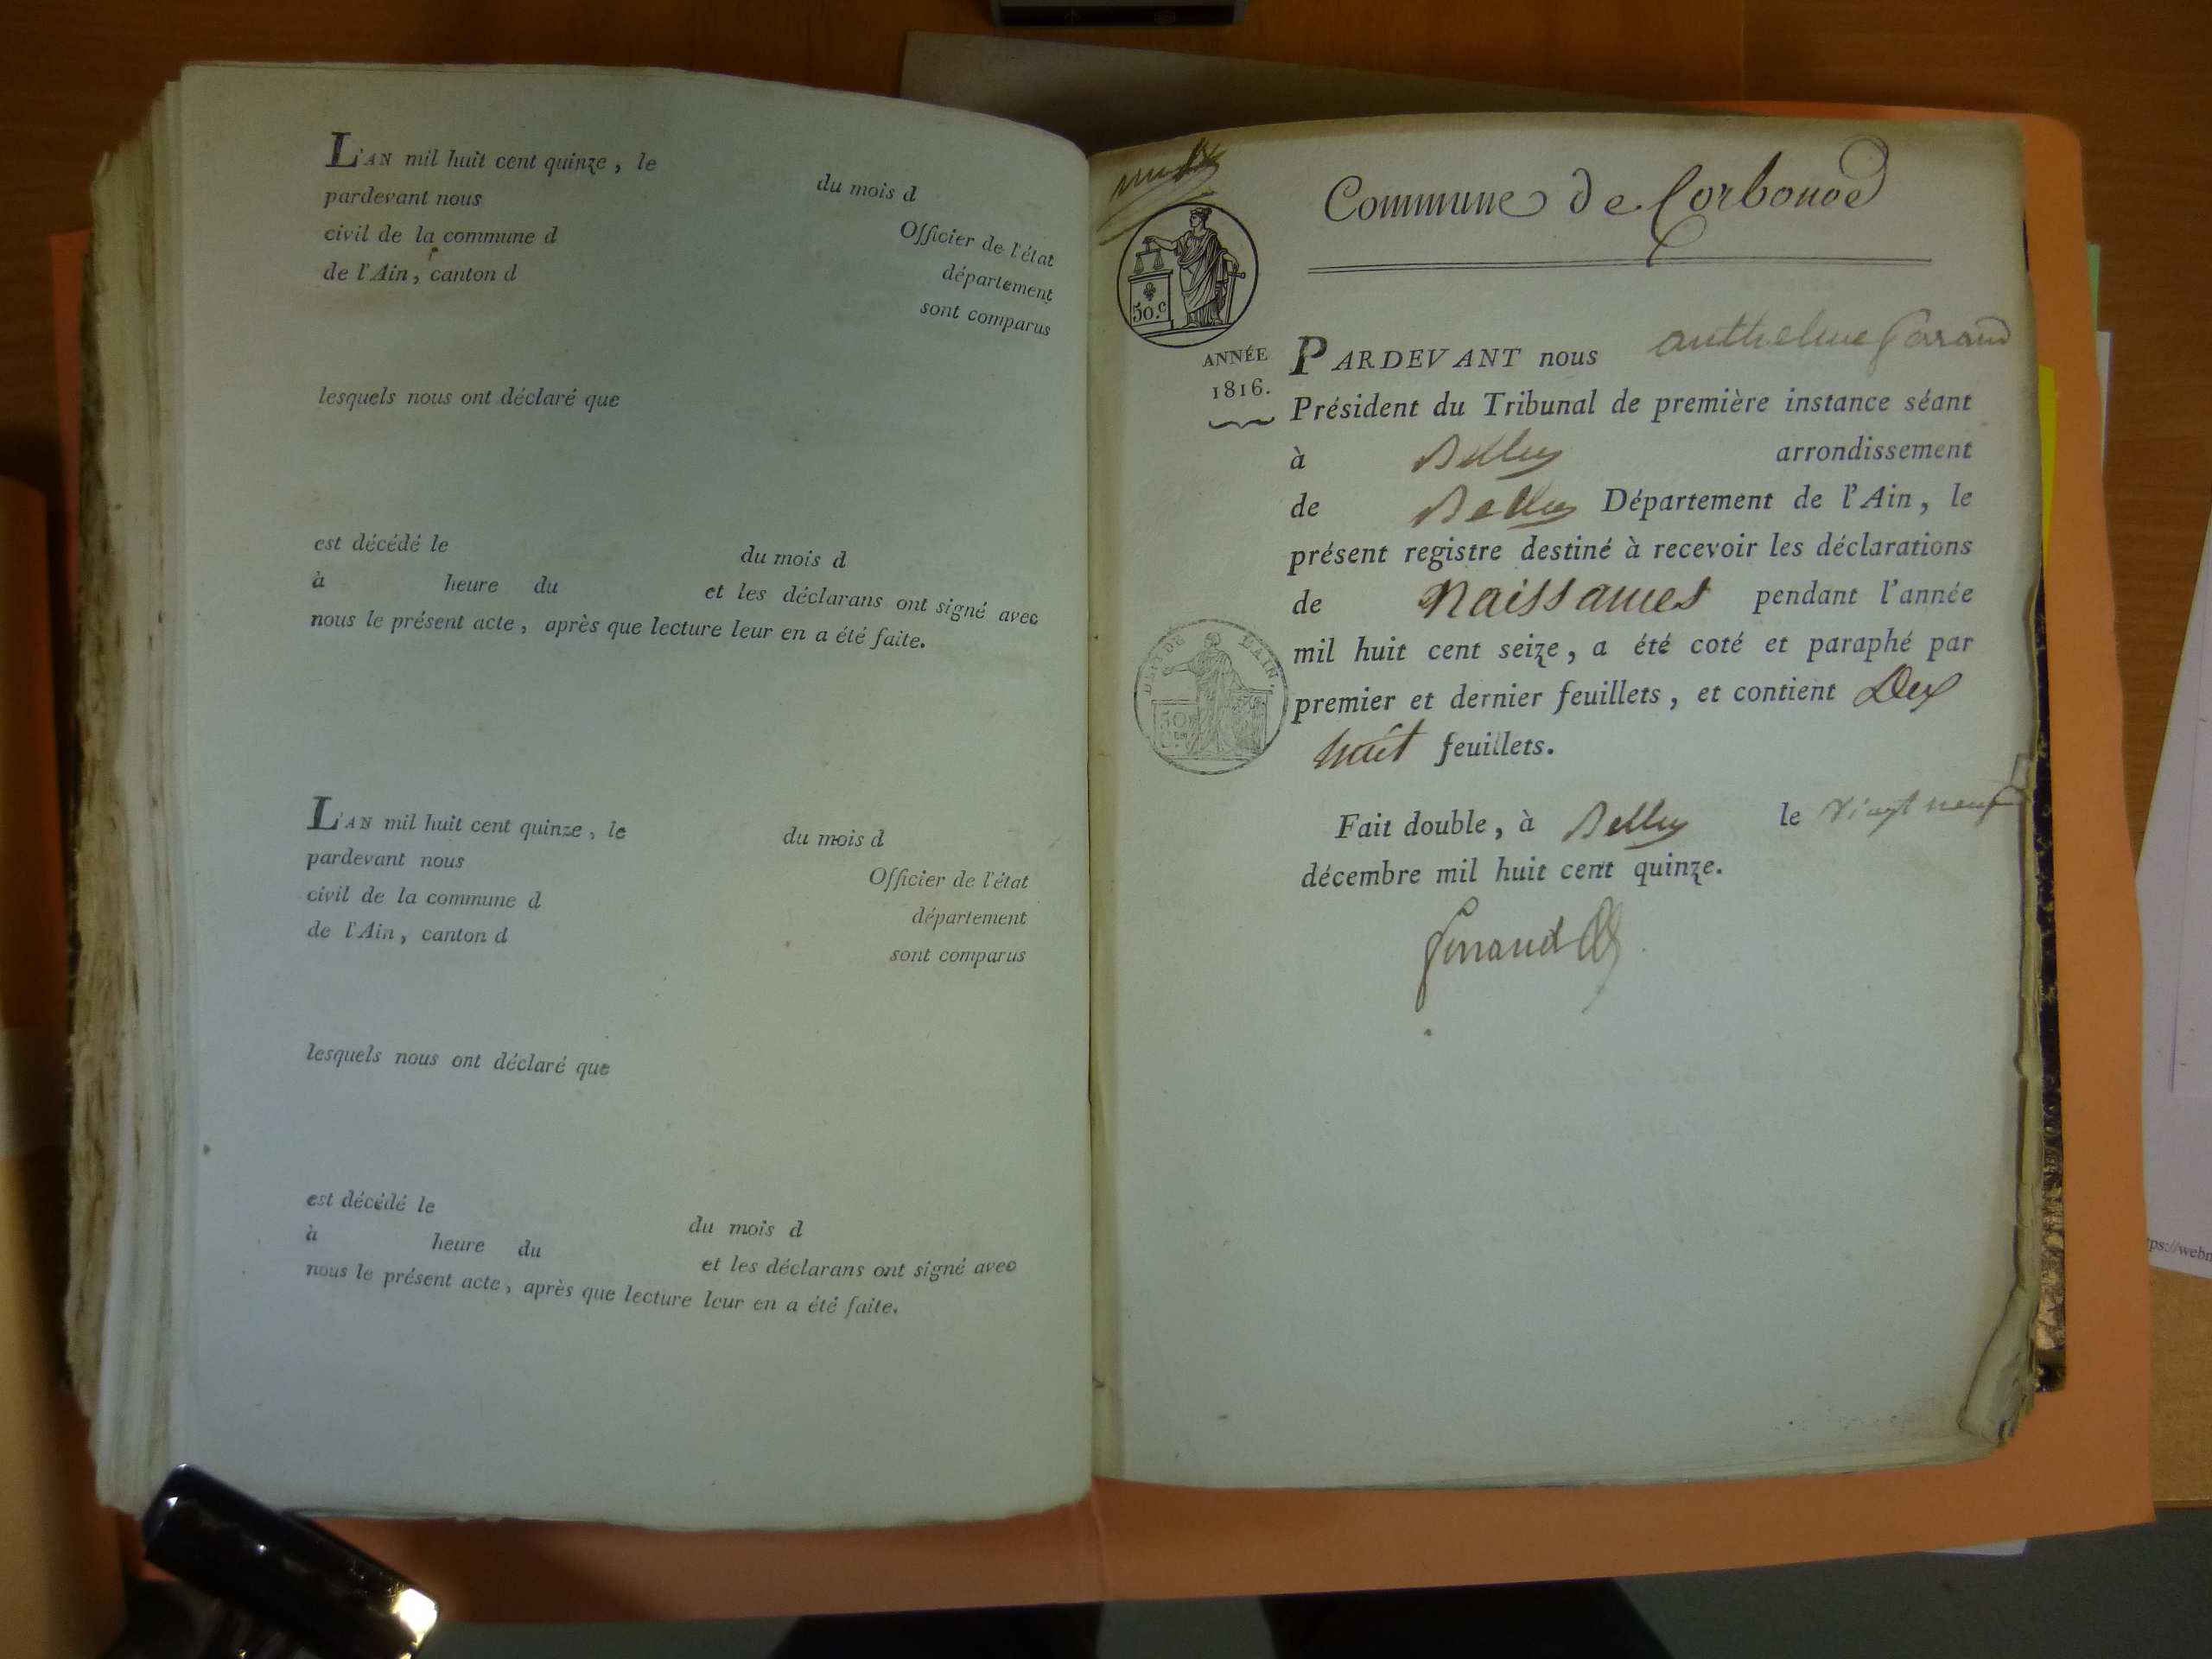 L'AN mil huit cent quinze, le du mois d
pardevant nous Officier de l'état
civil de la commune d département
de l'Ain, canton d sont comparus
lesquels nous ont déclaré que
est décédé le du mois d
à heure du et les déclarans ont signé avec
nous le présent acte, après que lecture leur en a été faite.
L'AN mil huit cent quinze, le du mois d
pardevant nous Officier de l'état
civil de la commune d département
de l'Ain, canton d sont comparus
lesquels nous ont déclaré que
est décédé le du mois d
à heure du et les déclarans ont signé avec
nous le présent acte, après que lecture leur en a été faite.
Commune de Corbonod
50.c
ANNÉE
1816.
PARDEVANT nous anthelme
Président du Tribunal de première instance séant
à Belley arrondissement
de Belley Département de l'Ain, le
présent registre destiné à recevoir les déclarations
de Naissances pendant l'année
mil huit cent seize, a été coté et paraphé par
premier et dernier feuillets, et contient Dix
huit feuillets.
DEPT DE L'AIN.
50
Fait double, à Belley le vingt neuf
décembre mil huit cent quinze.
tps://webm